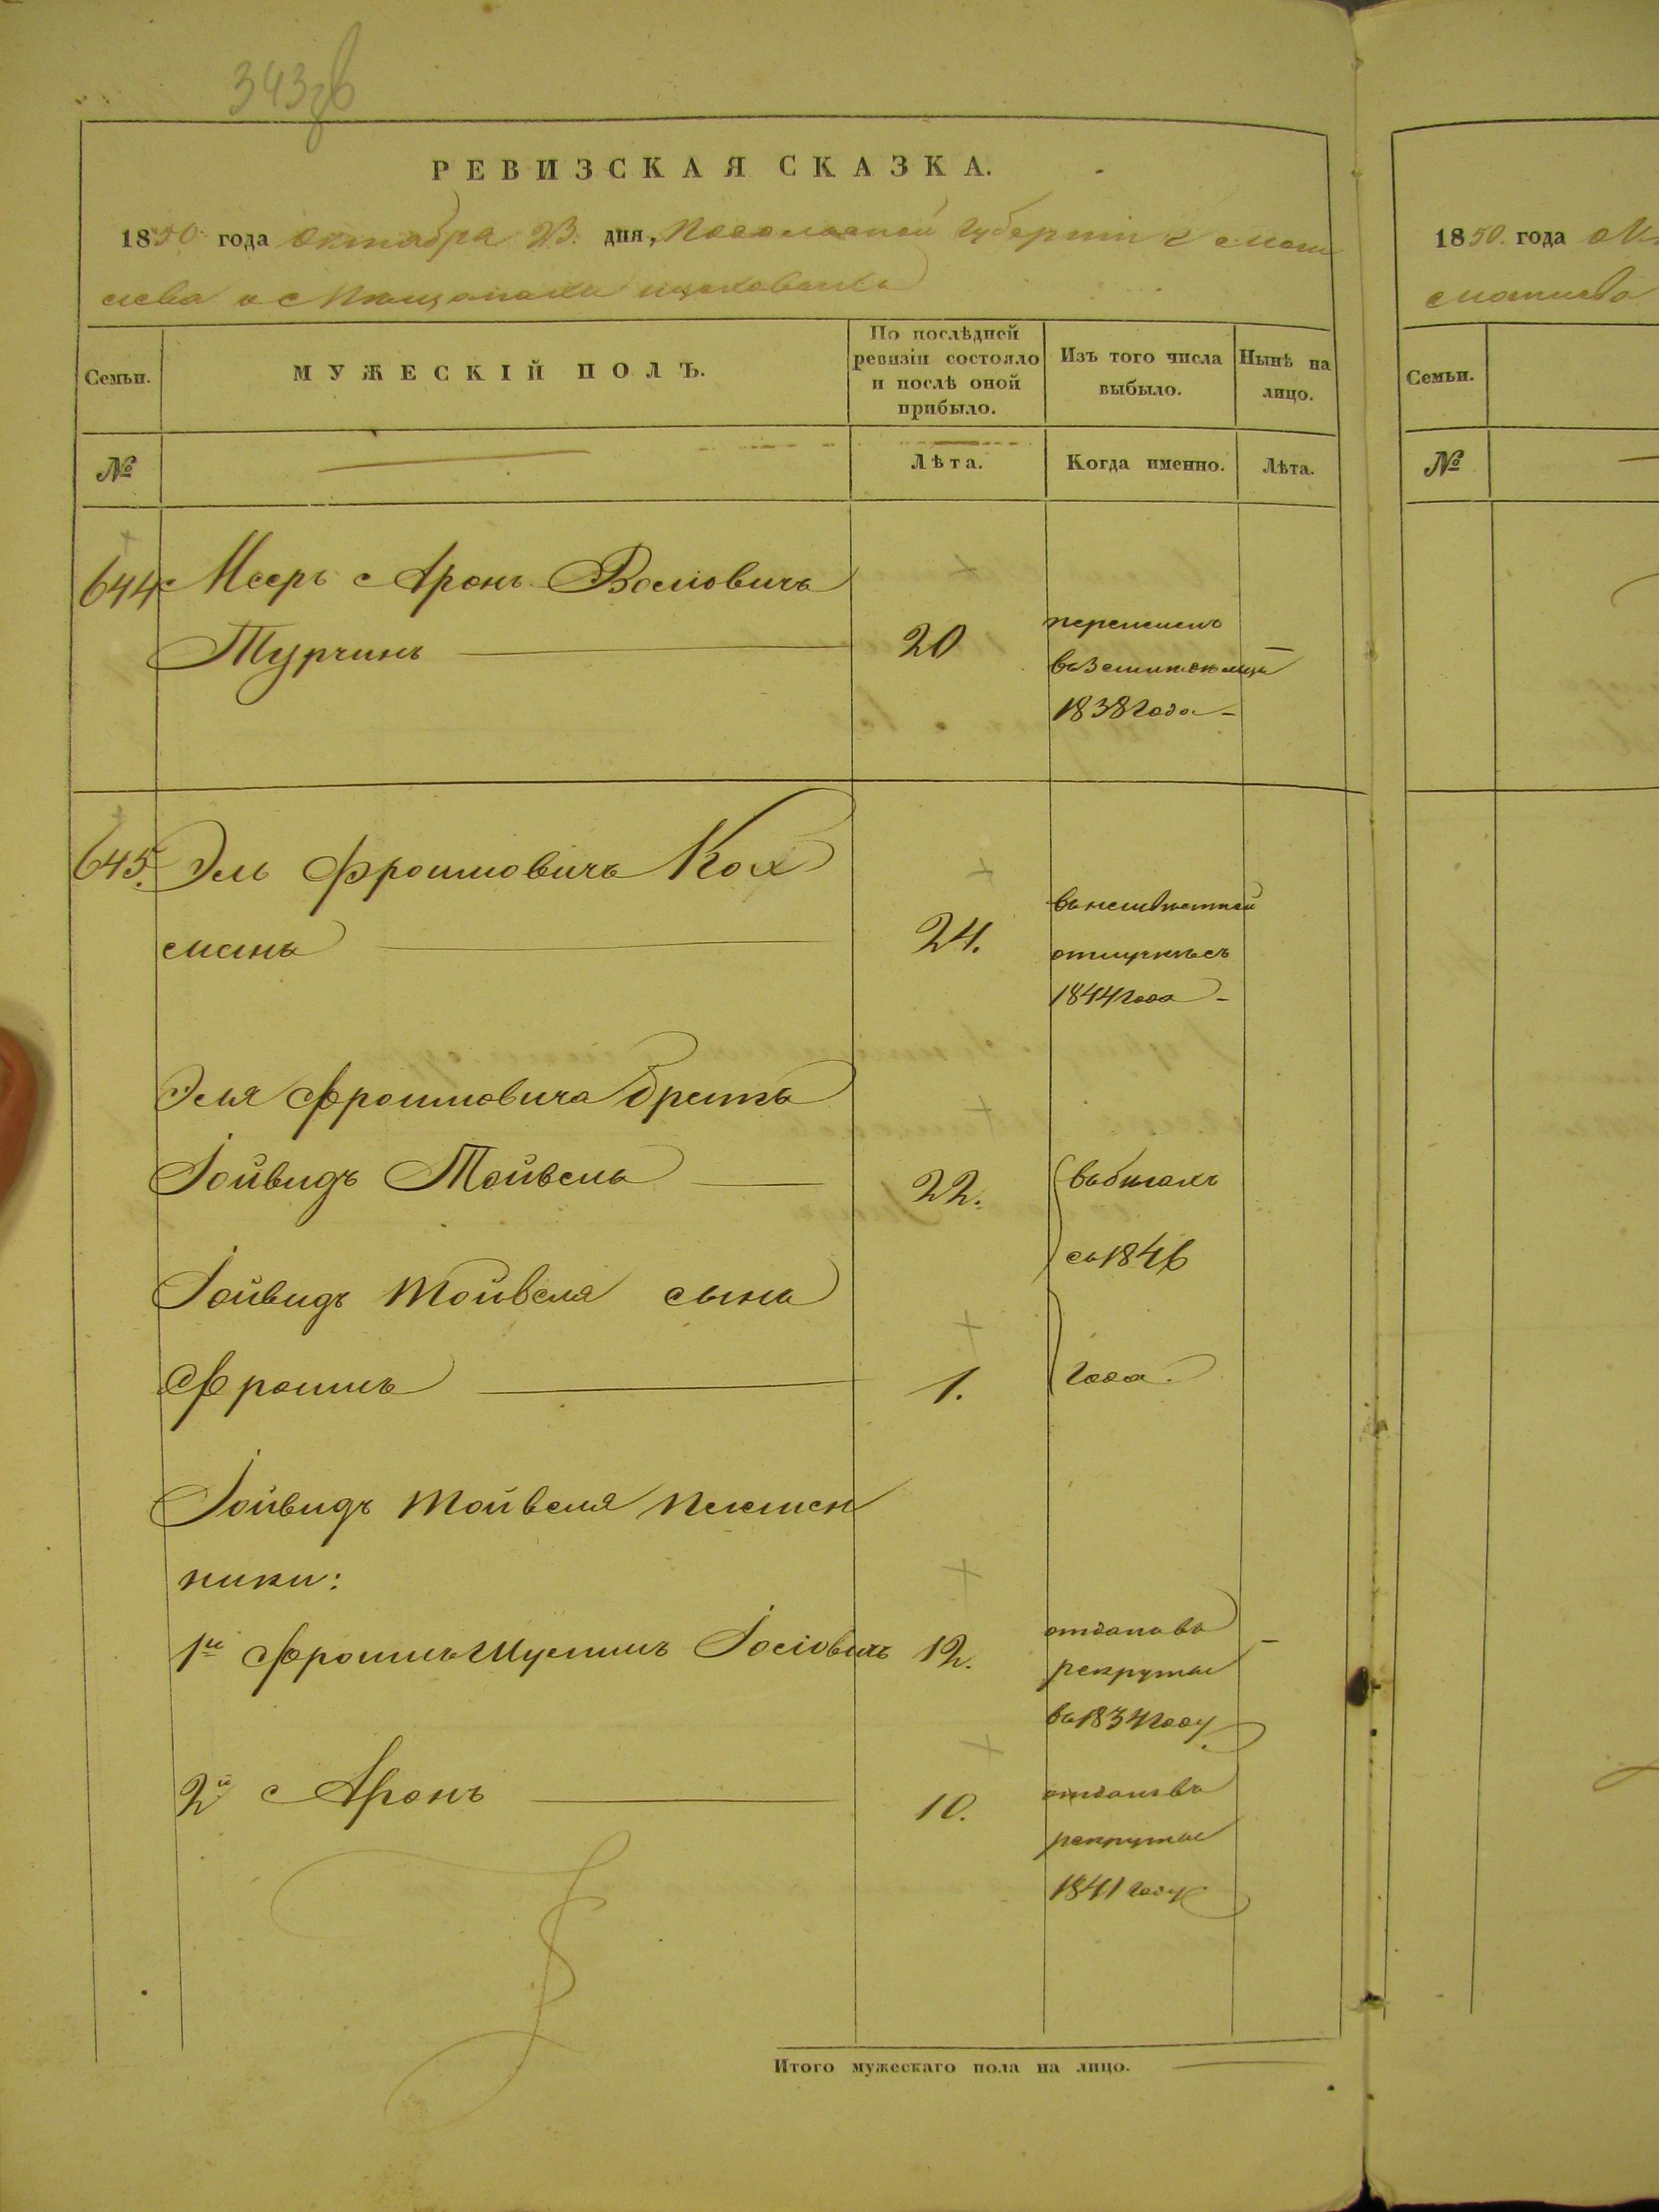 343об
РЕВИЗСКАЯ СКАЗКА.
1850 года октября 23. дня, Подольской губернии г. Моги
лева о мещанахъ
Семьи.
МУЖЕСКІЙ ПОЛЪ.
По послѣдней ревизіи состояло и послѣ оной прибыло.
Изъ того числа выбыло.
Нынѣ на лицо.
№
Лѣта.
Когда именно.
Лѣта.
644 Мееръ Аронъ Волковичъ
Турчинъ 20
1838 года
645. Эль Фроимовичъ Кох
манъ 24.
въ неизвѣстной
отлучкѣ съ
1844 года
Эля Фроимовича братъ
Іойвидъ Тойвель 22. въ бѣгахъ
съ 1846
Іойвидъ Тойвеля сынъ
Фроимъ 1. года.
Іойвидъ Тойвеля племен
ники:
1й Фроимъ Мусимъ Іосіовичъ 12. отданъ въ
рекруты
въ 1834 году
2й Аронъ 10. отданъ въ
рекруты
1841 году
Итого мужескаго пола на лицо.
1850. года
Семьи.
№